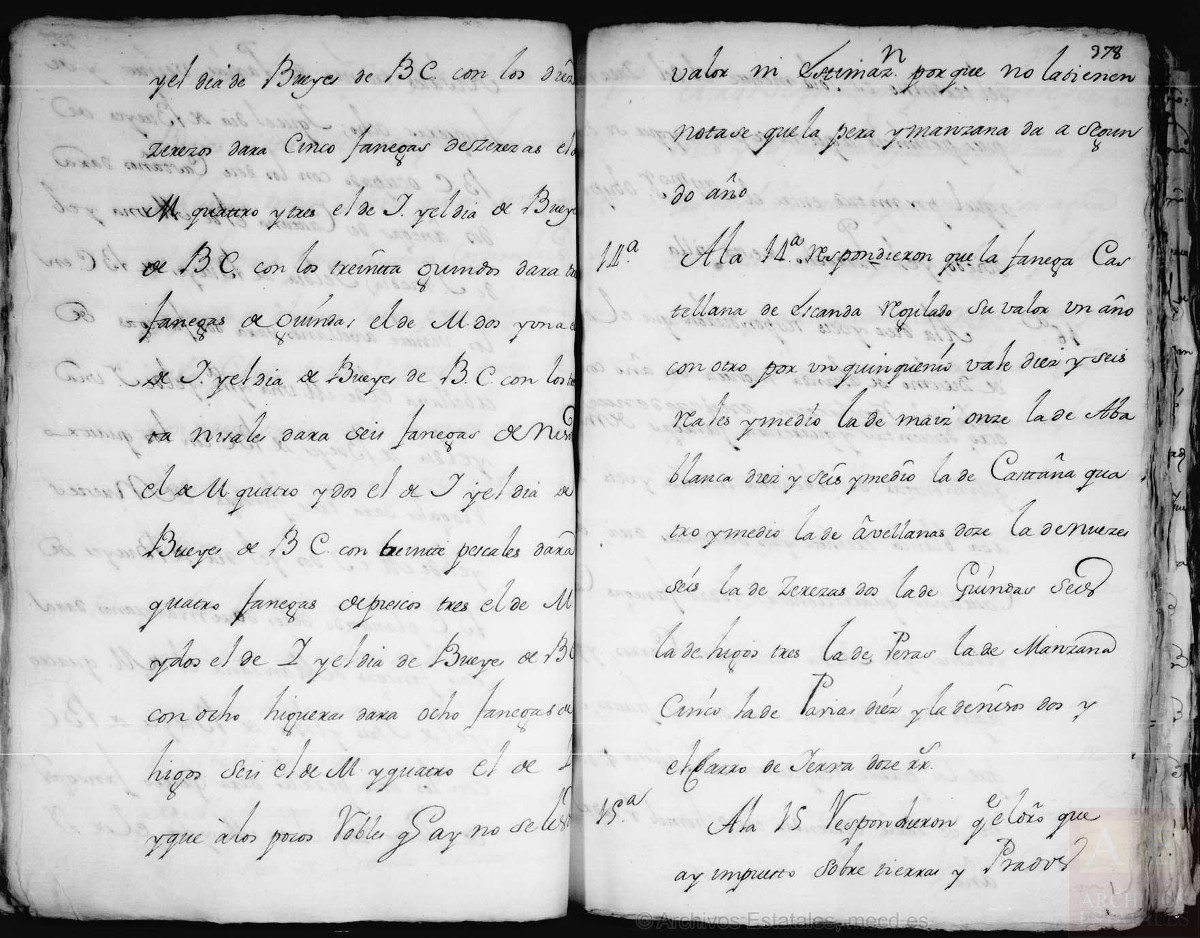 y el dia de Bueyes de B.C. con los
zerezos dara Cinco fanegas deszerezas el
M. quattro y tres el de I. y el dia de Bueye
de B.C. con los treinta guindos dara
fanegas de guindas el de M dos y vna
de I. y el dia de Bueyes de B.C. con los
ta nisales dara seis fanegas de niso
el de M. quatro y dos el de I y el dia de
Bueyes de B C. con treinta pescales dara
quatro fanegas de piescos tres el de M
y dos el de I y el dia de Bueyes de BC
con ocho higueras dara ocho fanegas de
higos seis el de M y quatro el de I
y que à los pocos Robles q̃ ay no se les
978
valor ni Estimaz.n porque no la tienen
notase que la pera y manzana da a segun
do año
14.a A la 14.a respondieron que la fanega Cas
tellana de Escanda regulado su valor vn año
con otro por vn quinquenio vale diez y seis
reales y medio la de maiz onze la de Aba
blanca diez y seis y medio la de Castaña qua
tro y medio la de avellanas doze la de nuezes
seis la de zerezas dos la de Guindas seis
la de higos tres la de Peras la de Manzana
Cinco la de Pavias diez y la de nisos dos y
el Carro de Yerva doze rr.
15.a A la 15 Respondieron q̃ el dro que
ay impuesto sobre tierras y Prados
© Archivos Estatales, mecd.es